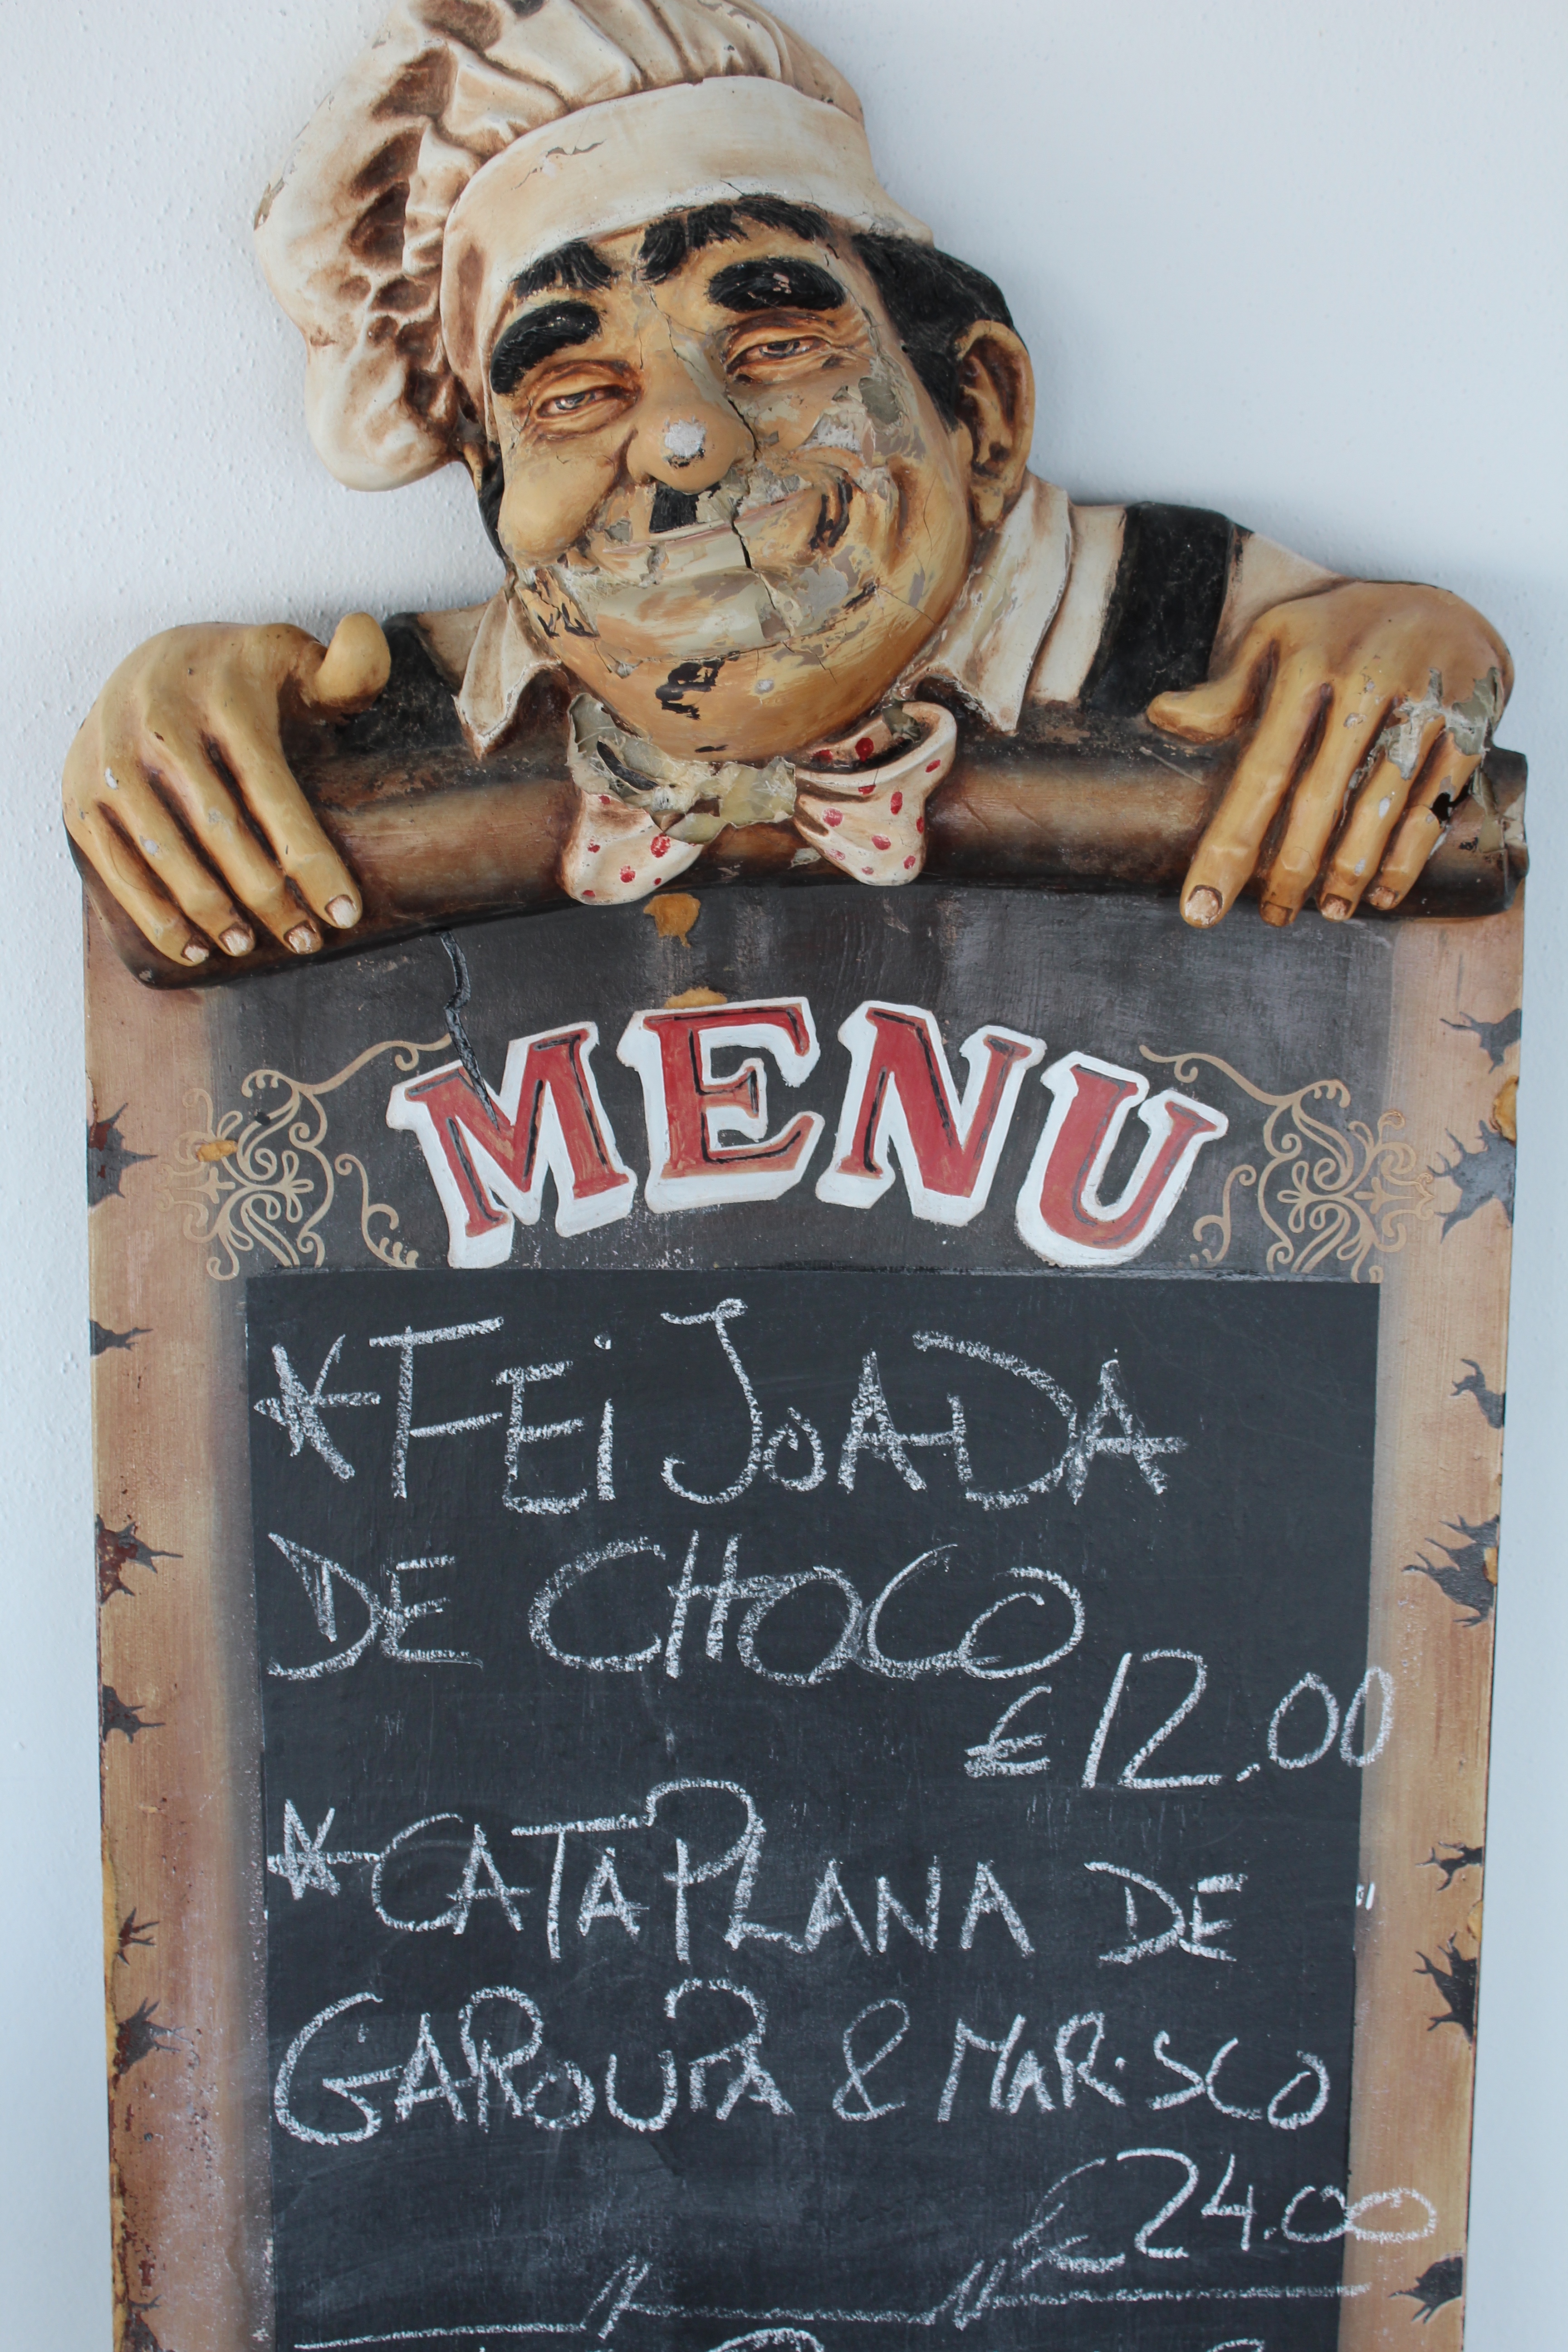 MENU
* FEiJOADA
DE CHOCO
€ 12.00
* CATAPLANA DE
GAROUPA & MARiSCO
€ 24.00